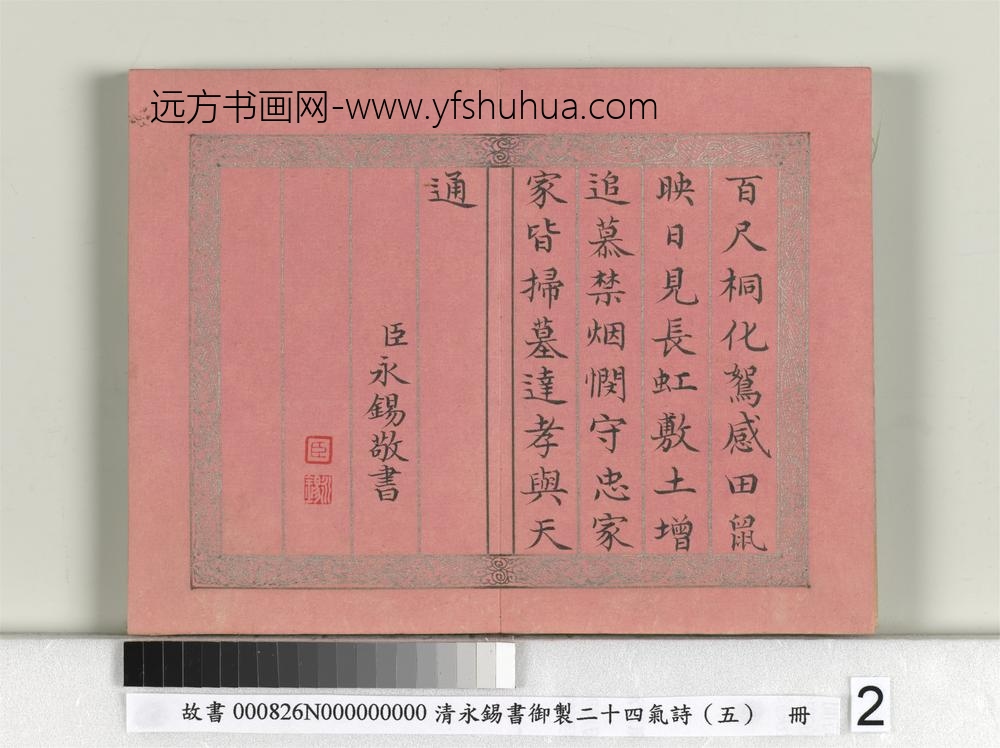 远方书画网-www.yfshuhua.com
百尺桐化鴽感田鼠
映日見長虹敷土增
追慕禁烟憫守忠家
家皆掃墓達孝與天
通
臣永錫敬書
臣
永錫
故書 000826N000000000 清永錫書御製二十四氣詩（五） 冊
2